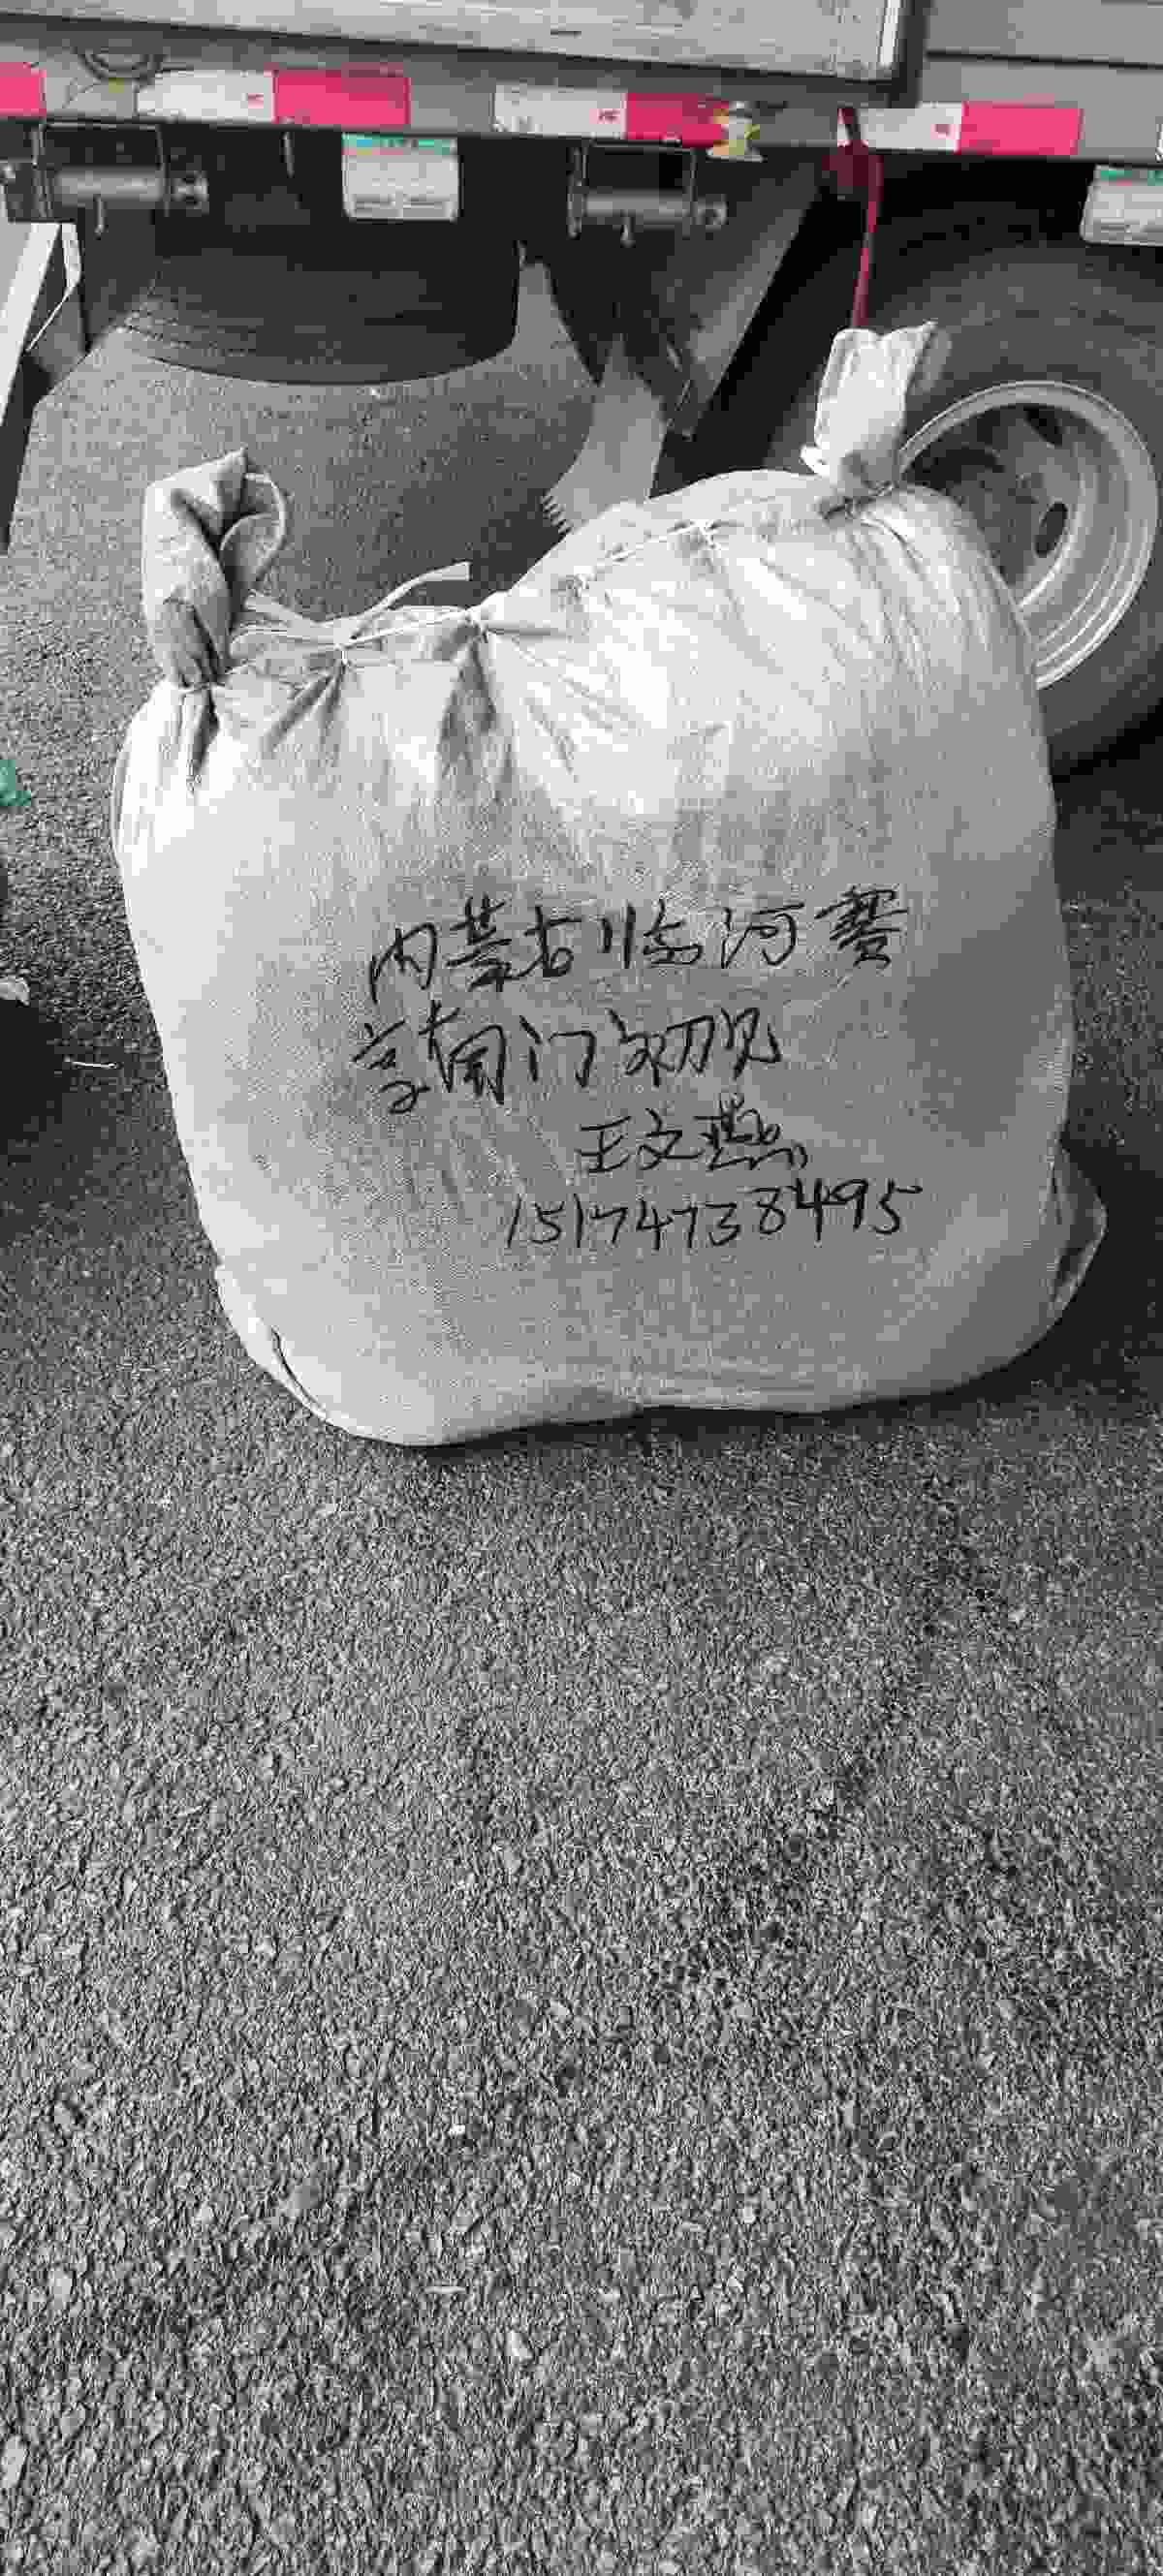 内蒙古临河赛
享南门初见
王文燕
15174738495